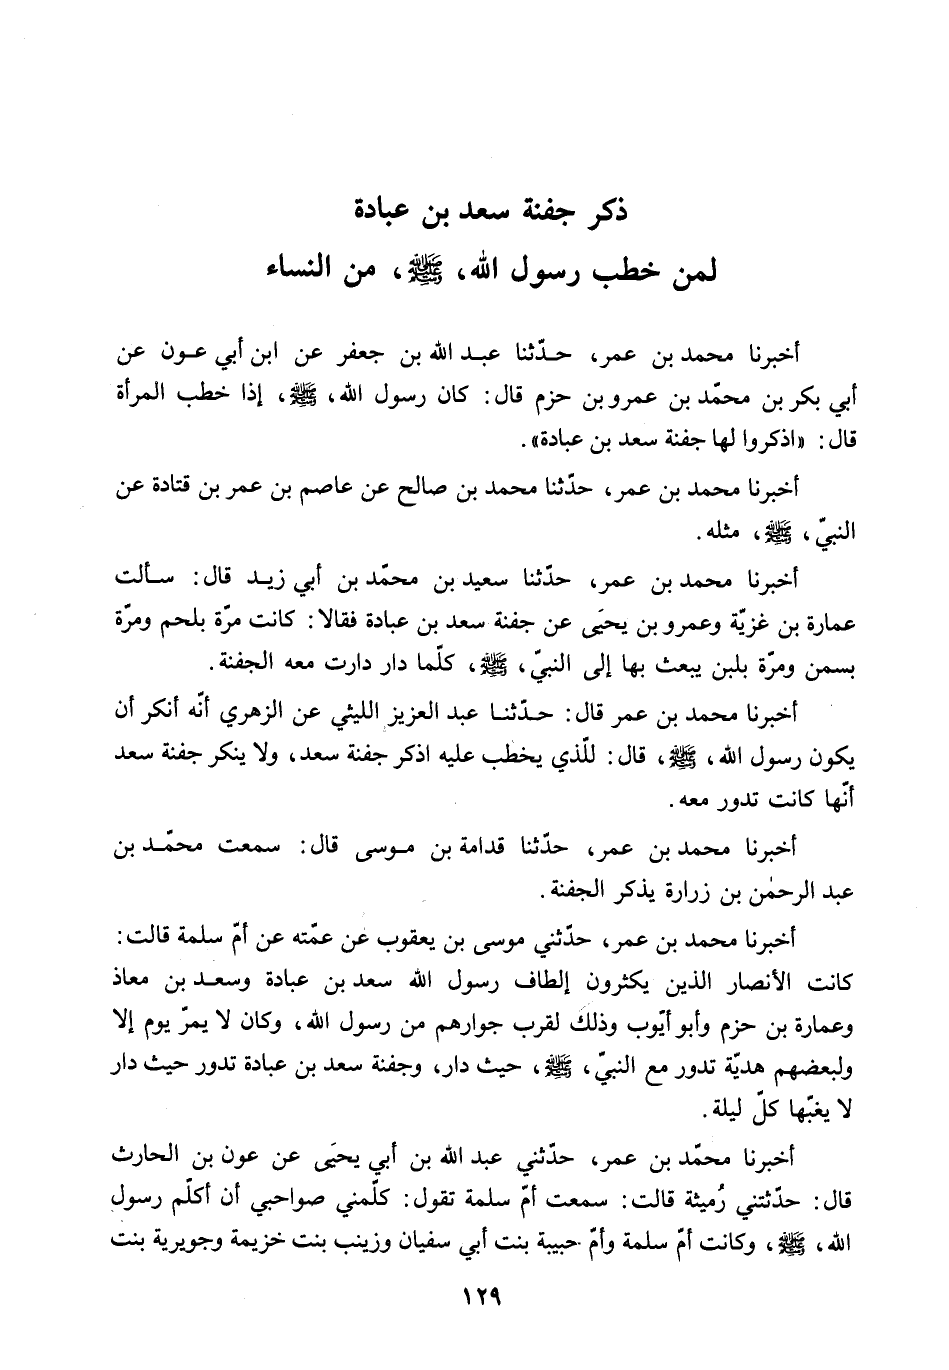 ذكر جفنة سعد بن عبادة
لمن خطب رسول الله، ﷺ، من النساء
أخبرنا محمد بن عمر، حدّثنا عبد الله بن جعفر عن ابن أبي عون عن
أبي بكر بن محمّد بن عمرو بن حزم قال: كان رسول الله، ﷺ، إذا خطب المرأة
قال: «اذكروا لها جفنة سعد بن عبادة».
أخبرنا محمد بن عمر، حدّثنا محمد بن صالح عن عاصم بن عمر بن قتادة عن
النبيّ، ﷺ، مثله.
أخبرنا محمد بن عمر، حدّثنا سعيد بن محمّد بن أبي زيد قال: سألت
عمارة بن غزيّة وعمرو بن يحيَى عن جفنة سعد بن عبادة فقالا: كانت مرّة بلحم ومرّة
بسمن ومرّة بلبن يبعث بها إلى النبيّ، ﷺ، كلّما دار دارت معه الجفنة.
أخبرنا محمد بن عمر قال: حدّثنا عبد العزيز الليثي عن الزهري أنّه أنكر أن
يكون رسول الله، ﷺ، قال: للّذي يخطب عليه اذكر جفنة سعد، ولا ينكر جفنة سعد
أنّها كانت تدور معه.
أخبرنا محمد بن عمر، حدّثنا قدامة بن موسى قال: سمعت محمّد بن
عبد الرحمٰن بن زرارة يذكر الجفنة.
أخبرنا محمد بن عمر، حدّثني موسى بن يعقوب عن عمّته عن أمّ سلمة قالت:
كانت الأنصار الذين يكثرون إلطاف رسول الله سعد بن عبادة وسعد بن معاذ
وعمارة بن حزم وأبو أيّوب وذلك لقرب جوارهم من رسول الله، وكان لا يمرّ يوم إلا
ولبعضهم هديّة تدور مع النبيّ، ﷺ، حيث دار، وجفنة سعد بن عبادة تدور حيث دار
لا يغبّها كلّ ليلة.
أخبرنا محمّد بن عمر، حدّثني عبد الله بن أبي يحيَى عن عون بن الحارث
قال: حدّثتني رُميثة قالت: سمعت أمّ سلمة تقول: كلّمني صواحبي أن أكلّم رسول
الله، ﷺ، وكانت أمّ سلمة وأمّ حبيبة بنت أبي سفيان وزينب بنت خزيمة وجويرية بنت
١٢٩